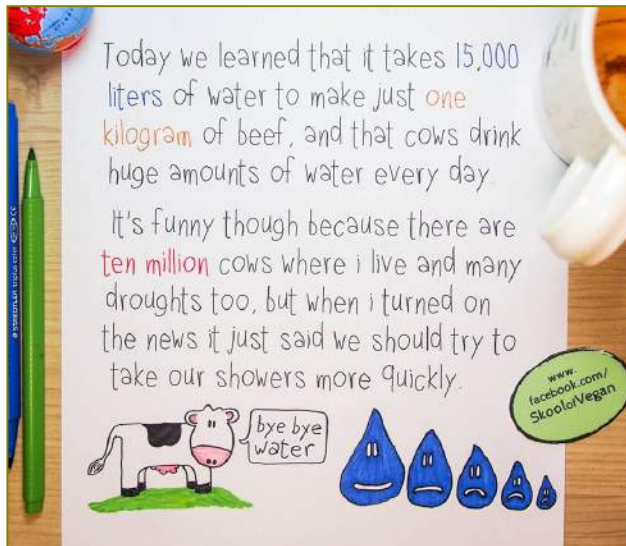 Today we learned that it takes 15,000
liters of water to make just one
kilogram of beef, and that cows drink
huge amounts of water every day.
It's funny though because there are
ten million cows where i live and many
droughts too, but when i turned on
the news it just said we should try to
take our showers more quickly.
bye bye
water
www.
facebook.com/
SkoolofVegan
STAEDTLER triplus color